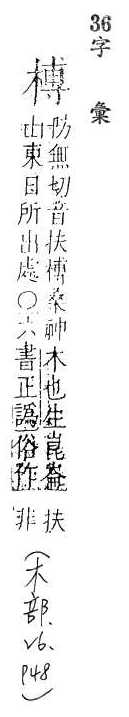 36字彙
榑
防無切音扶榑桑神木也生崑崙
山東日所出處〇六書正譌俗作扶非
(木部. v6. p48)